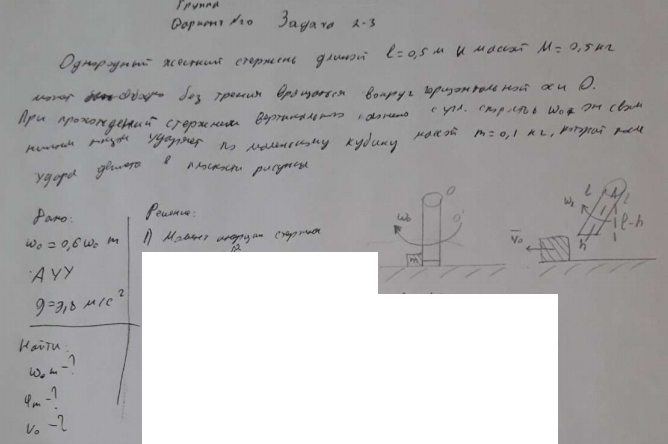 Группа
Вариант №20 Задача 2-3
Однородный жесткий стержень длиной l = 0,5 м и массой M = 0,5 кг
может без трения вращаться вокруг горизонтальной оси O.
При прохождении стержнем вертикального с угл. скоростью ω₀
нижним концом ударяет по маленькому кубику массой m = 0,1 кг, который после
удара в плоскости рисунка
Дано:
ω₀ = 0,6 ω₀ m
АУУ
g = 9,8 м/с²
Найти:
ω₀ m - ?
φm - ?
v₀ - ?
Решение:
1) Момент инерции стержня
O
ω₀
O'
m
l
ω₂
l
l-h
h
v₀